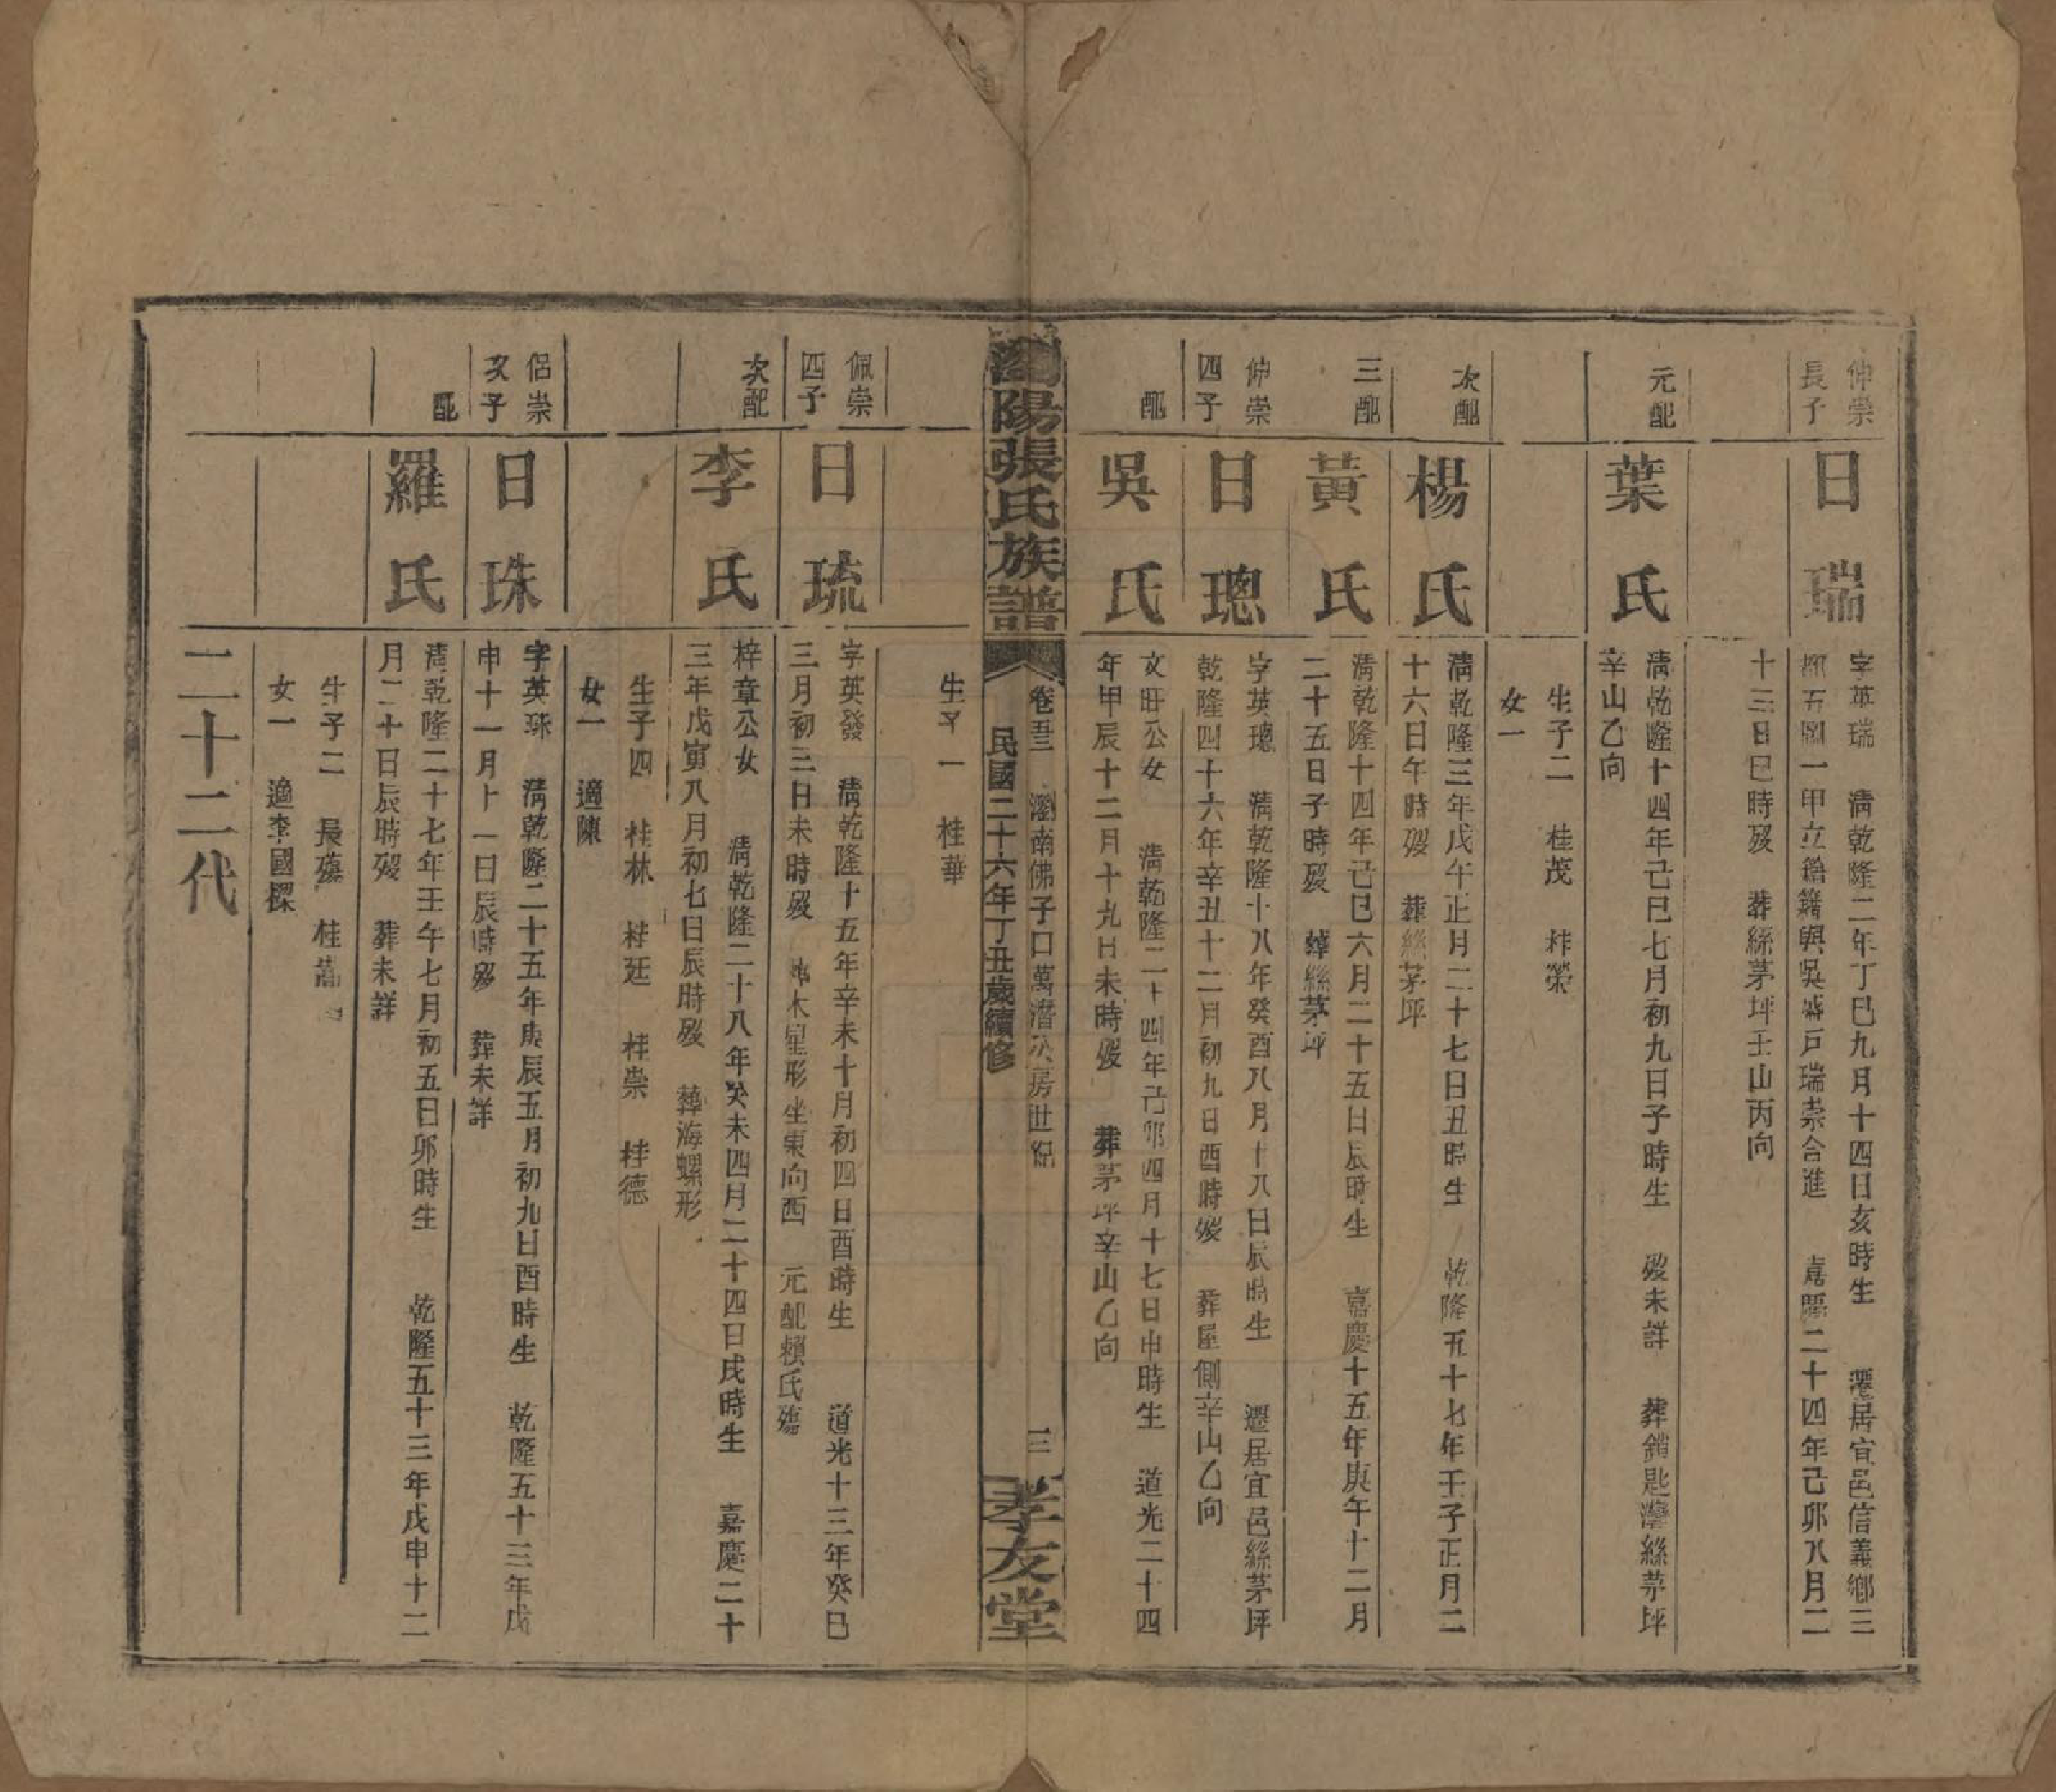 仲崇
長子
日瑞
字英瑞 清乾隆二年丁巳九月十四日亥時生 遷居宜邑信義鄉三
都五圖一甲立籍與吳盛戶瑞崇合進 嘉慶二十四年己卯八月二
十三日巳時歿 葬絲茅坪壬山丙向
元配
葉氏
清乾隆十四年己巳七月初九日子時生 歿未詳 葬鎖匙灣絲茅坪
辛山乙向
生子二 桂茂 桂榮
女一
次配
楊氏
清乾隆三年戊午正月二十七日丑時生 乾隆五十七年壬子正月二
十六日午時歿 葬絲茅坪
三配
黃氏
清乾隆十四年己巳六月二十五日辰時生 嘉慶十五年庚午十二月
二十五日子時歿 葬絲茅坪
仲崇
四子
日璁
字英璁 清乾隆十八年癸酉八月十八日辰時生 遷居宜邑絲茅坪
乾隆四十六年辛丑十二月初九日酉時歿 葬屋側辛山乙向
配
吳氏
文旺公女 清乾隆二十四年己卯四月十七日申時生 道光二十四
年甲辰十二月十九日未時歿 葬茅坪辛山乙向
瀏陽張氏族譜
卷五 瀏南佛子口萬潛公房世紀
民國二十六年丁丑歲續修
三
孝友堂
生子一 桂華
佩崇
四子
日琉
字英發 清乾隆十五年辛未十月初四日酉時生 道光十三年癸巳
三月初三日未時歿 木星形坐東向西 元配賴氏殤
次配
李氏
梓章公女 清乾隆二十八年癸未四月二十四日戌時生 嘉慶二十
三年戊寅八月初七日辰時歿 葬海螺形
生子四 桂林 桂廷 桂崇 桂德
女一 適陳
侶崇
次子
日珠
字英珠 清乾隆二十五年庚辰五月初九日酉時生 乾隆五十三年戊
申十一月十一日辰時歿 葬未詳
配
羅氏
清乾隆二十七年壬午七月初五日卯時生 乾隆五十三年戊申十二
月二十日辰時歿 葬未詳
生子二 長殤 桂
女一 適李國樑
二十二代